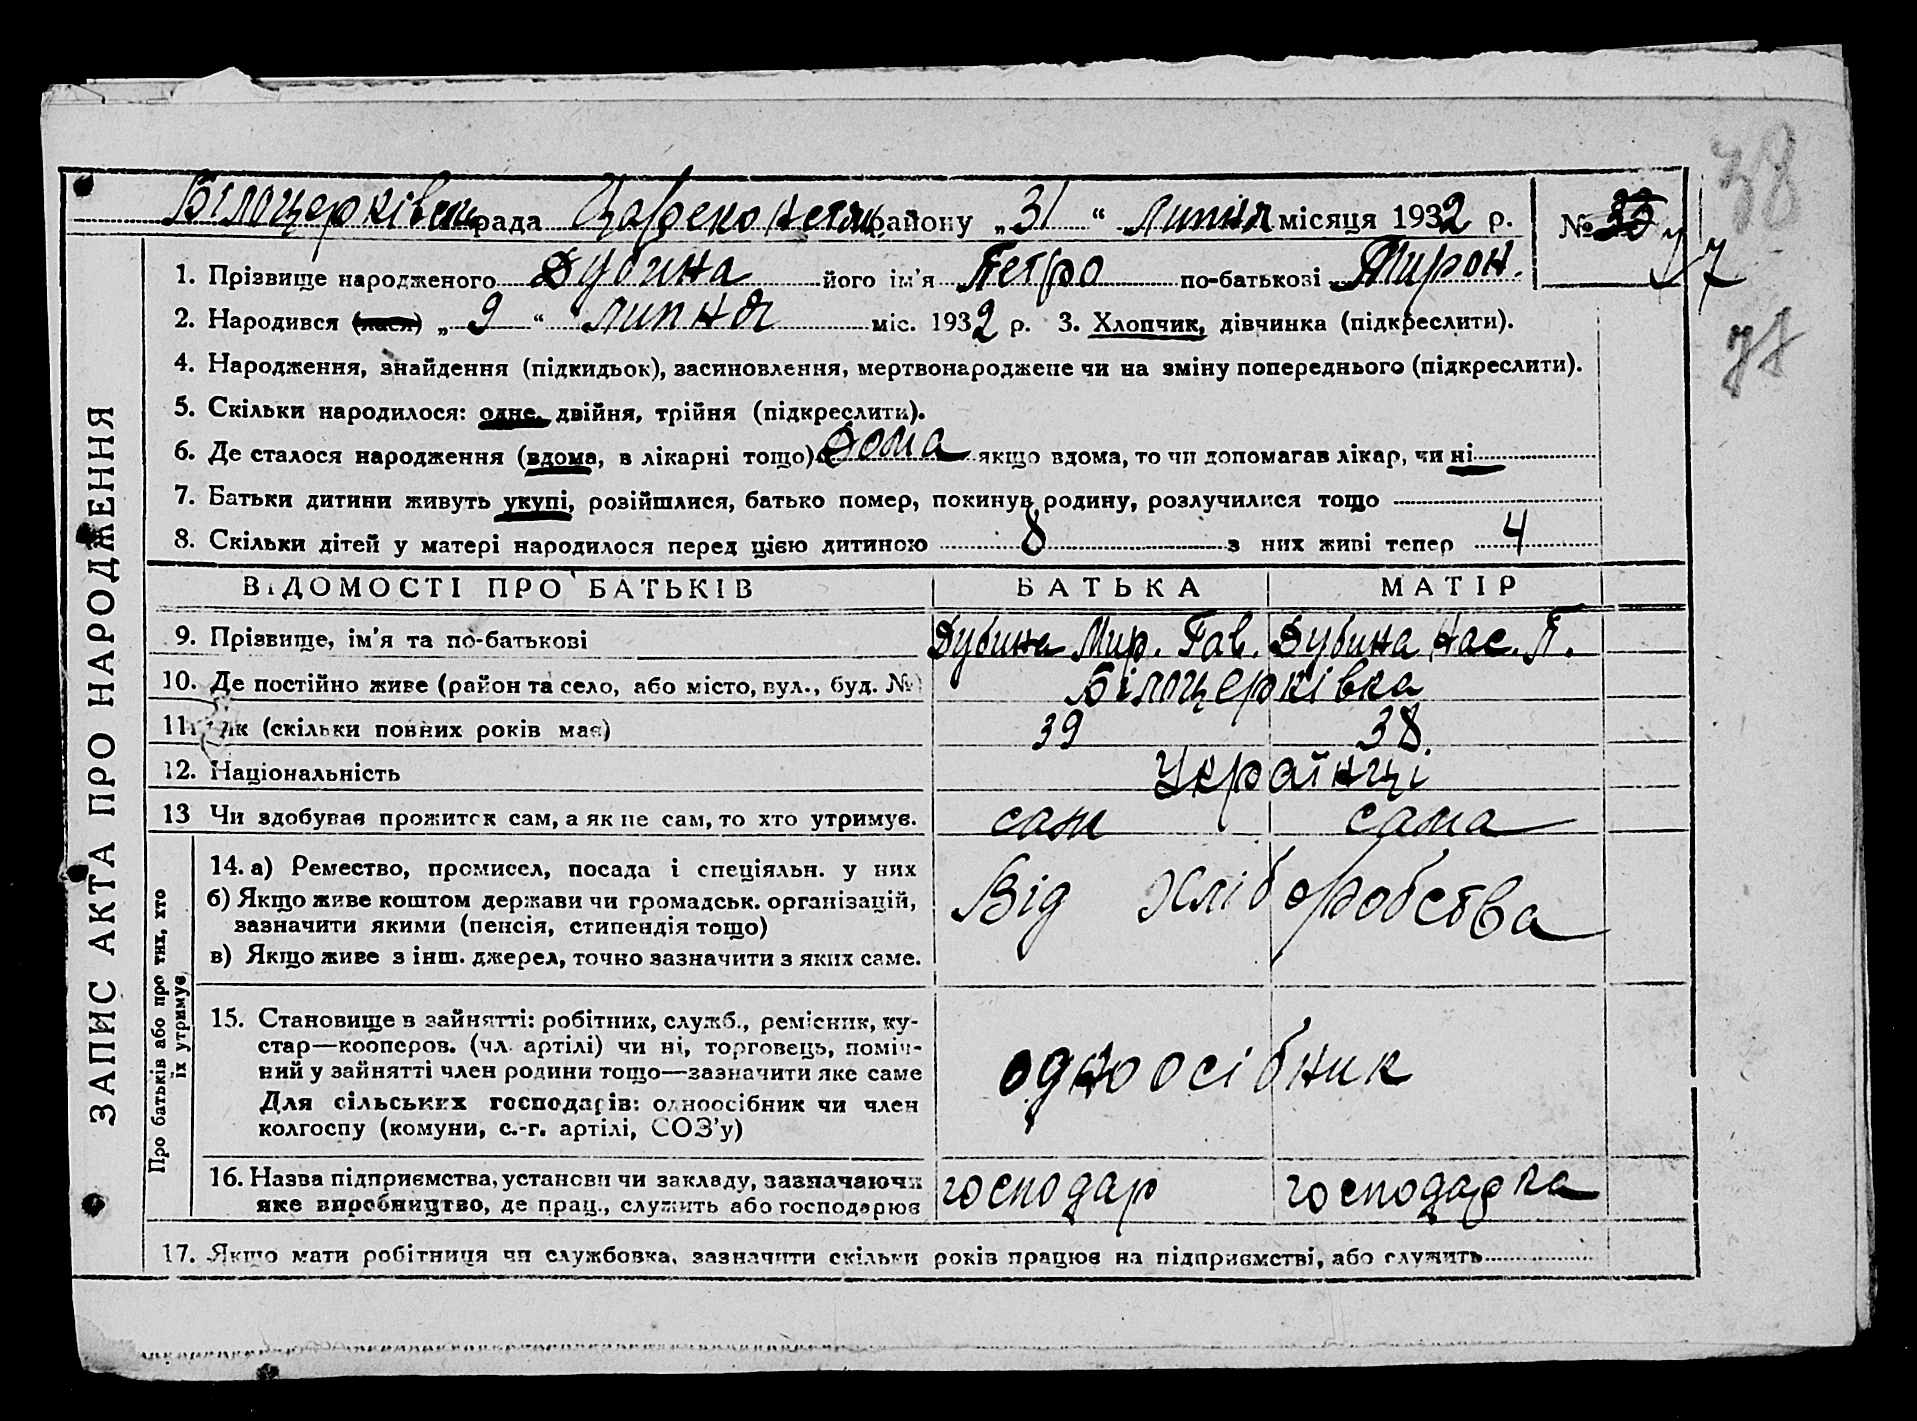 38
Білоцерківськ рада району „31“ липня місяця 1932 р. №
77
1. Прізвище народженого Дубина його ім'я Петро по-батькові Мирон.
2. Народився (лася) „9“ липня міс. 1932 р. 3. Хлопчик, дівчинка (підкреслити).
4. Народження, знайдення (підкидьок), засиновлення, мертвонароджене чи на зміну попереднього (підкреслити).
5. Скільки народилося: одне, двійня, трійня (підкреслити).
6. Де сталося народження (вдома, в лікарні тощо) Дома якщо вдома, то чи допомагав лікар, чи ні
7. Батьки дитини живуть укупі, розійшлися, батько помер, покинув родину, розлучилися тощо
8. Скільки дітей у матері народилося перед цією дитиною 8 з них живі тепер 4
ЗАПИС АКТА ПРО НАРОДЖЕННЯ
ВІДОМОСТІ ПРО БАТЬКІВ БАТЬКА МАТІР
9. Прізвище, ім'я та по-батькові Дубина Мир. Гав. Дубина Нас. П.
10. Де постійно живе (район та село, або місто, вул., буд. №) Білоцерківка
11. Вік (скільки повних років має) 39 38
12. Національність Українці
13 Чи здобував прожиток сам, а як не сам, то хто утримує. сам сама
Про батьків або про тих, хто
їх утримує
14. а) Ремество, промисел, посада і спеціяльн. у них
б) Якщо живе коштом держави чи громадськ. організацій,
зазначити якими (пенсія, стипендія тощо)
Від хліборобства
в) Якщо живе з інш. джерел, точно зазначити з яких саме.
15. Становище в зайнятті: робітник, служб., ремісник, ку-
стар—кооперов. (чл. артілі) чи ні, торговець, поміч-
ний у зайнятті член родини тощо—зазначити яке саме
одноосібник
Для сільських господарів: одноосібник чи член
колгоспу (комуни, с.-г. артілі, СОЗ'у)
16. Назва підприємства, установи чи закладу, зазначаючи
яке виробництво, де прац., служить або господарює
господар господарка
17. Якщо мати робітниця чи службовка, зазначити скільки років працює на підприємстві, або служить